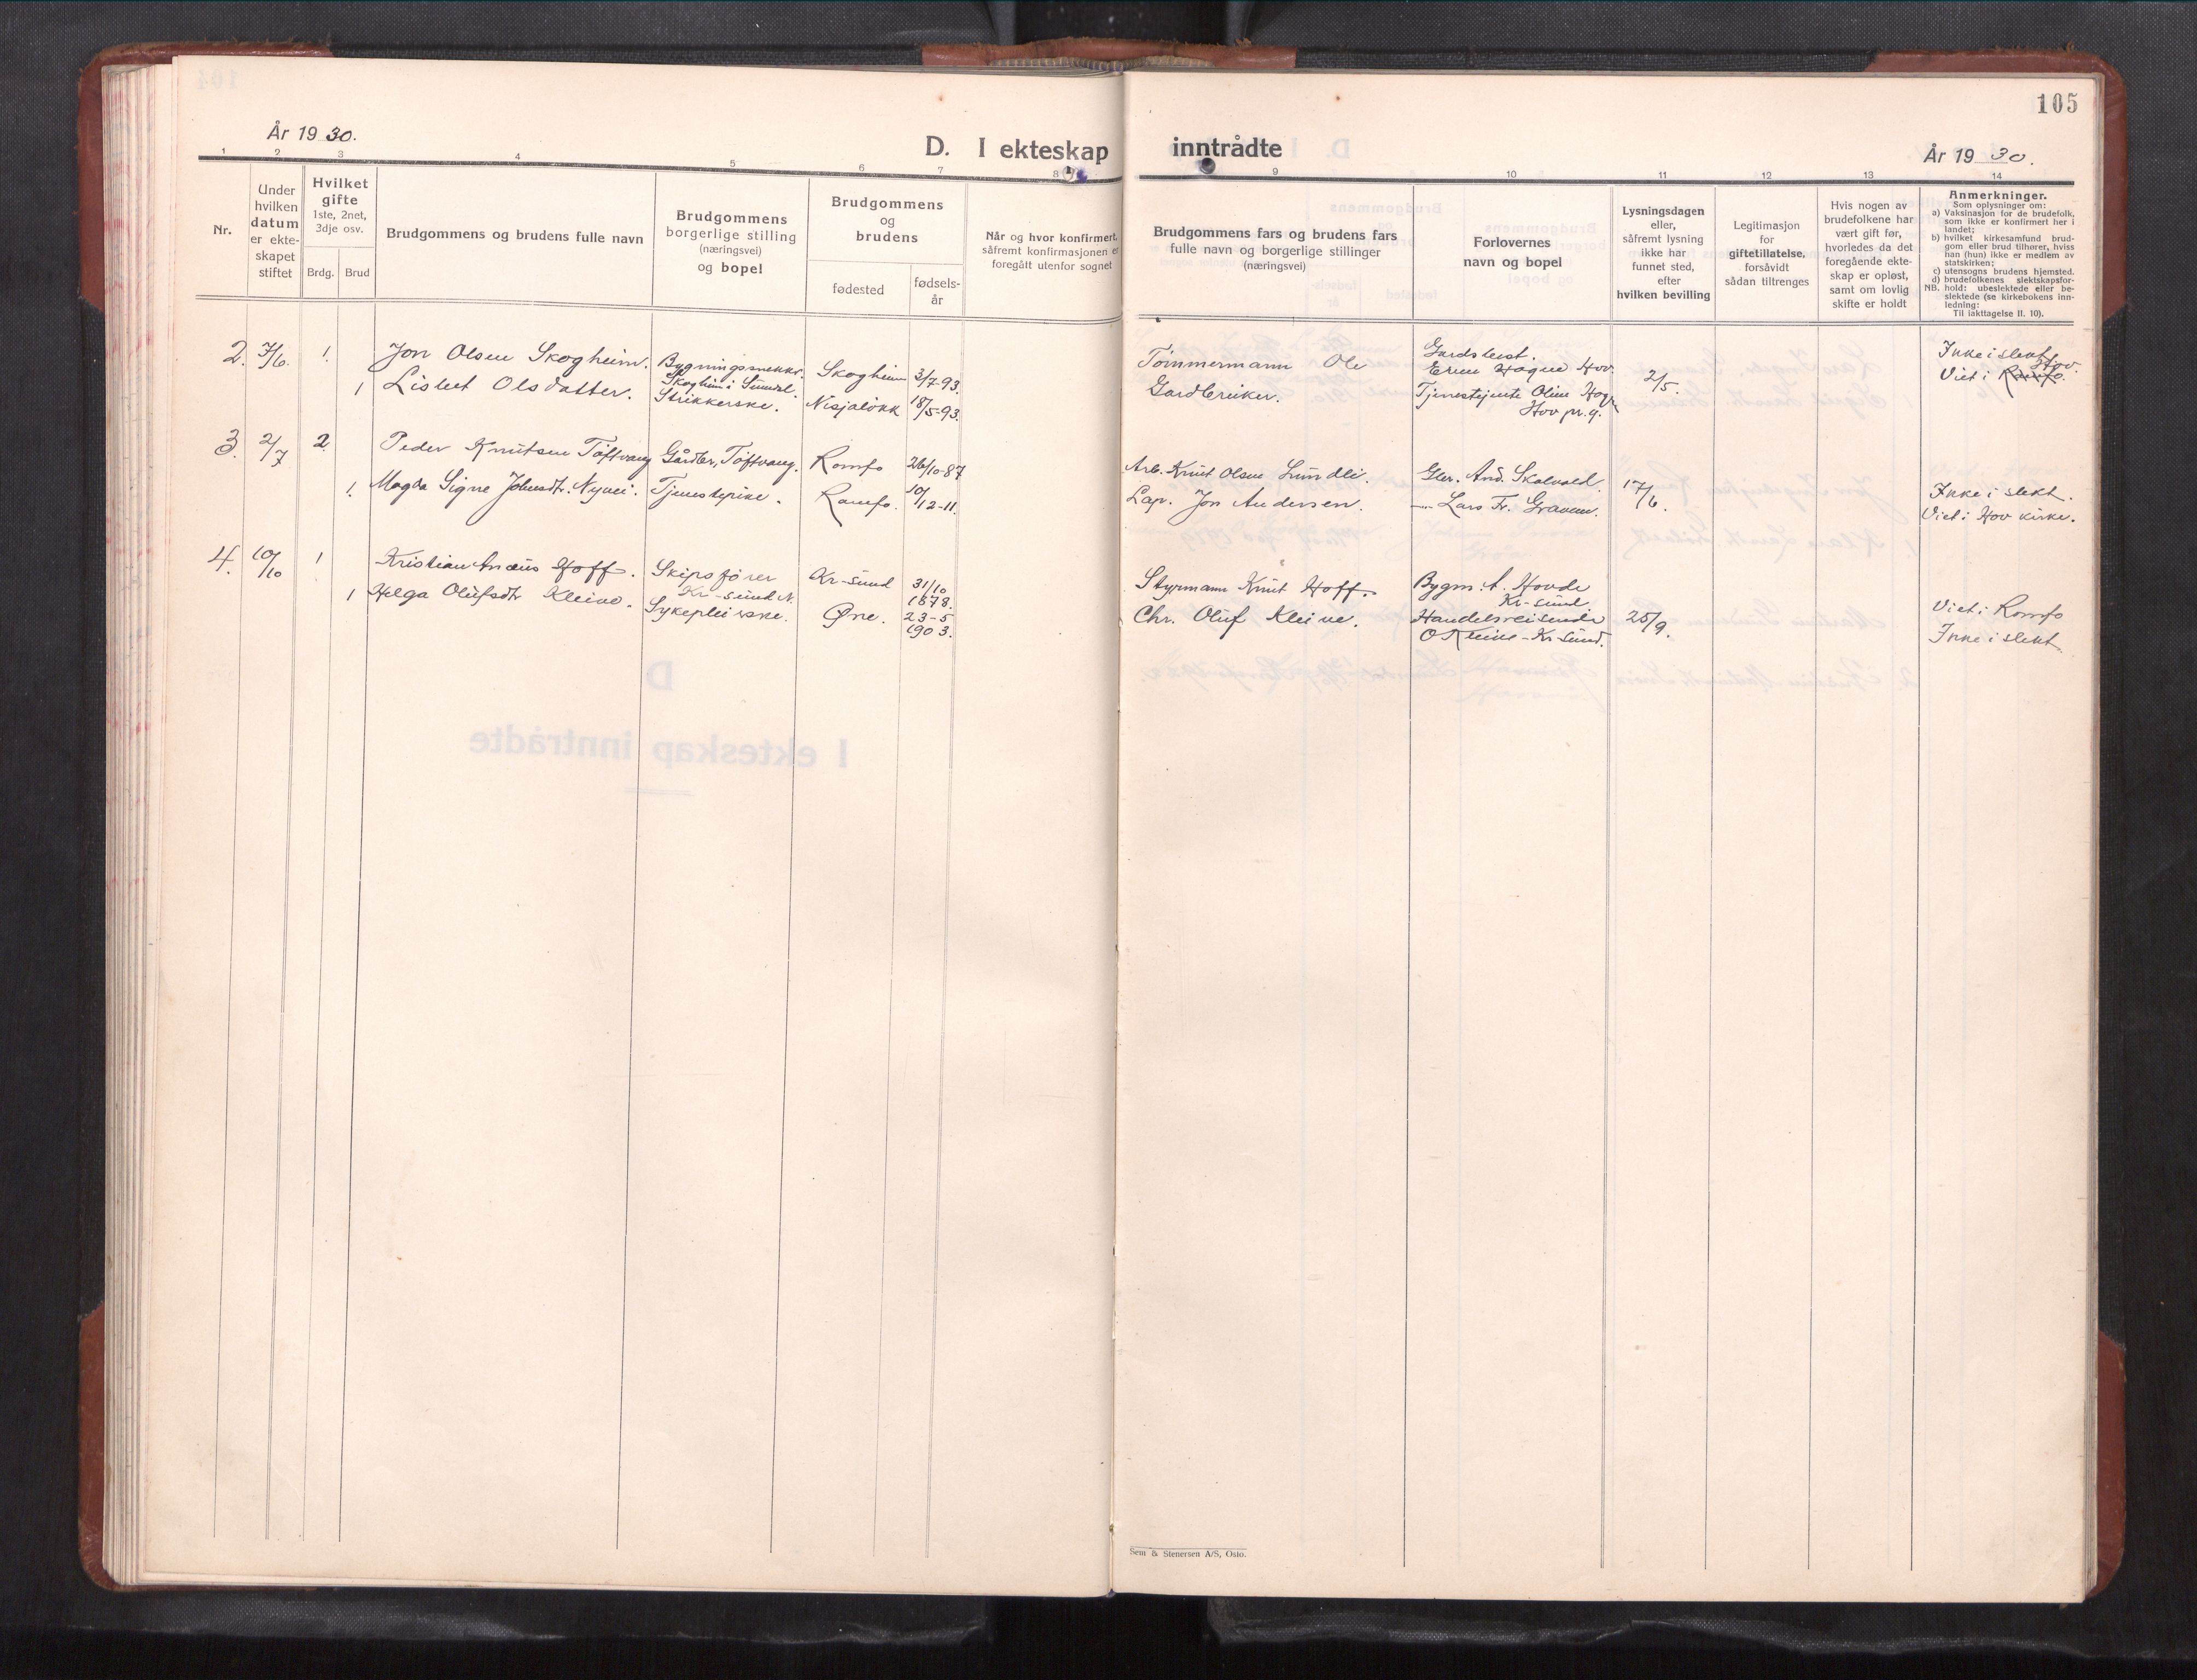 105
År 1930.
D. I ekteskap inntrådte
År 1930.
1 2 3 4 5 6 7 8 9 10 11 12 13 14
Nr.
Under
hvilken
datum
er ekte-
skapet
stiftet
Hvilket
gifte
1ste, 2net,
3dje osv.
Brdg.
Brud
Brudgommens og brudens fulle navn
Brudgommens
borgerlige stilling
(næringsvei)
og bopel
Brudgommens
og
brudens
fødested
fødsels-
år
Når og hvor konfirmert,
såfremt konfirmasjonen er
foregått utenfor sognet
Brudgommens fars og brudens fars
fulle navn og borgerlige stillinger
(næringsvei)
Forlovernes
navn og bopel
Lysningsdagen
eller,
såfremt lysning
ikke har
funnet sted,
efter
hvilken bevilling
Legitimasjon
for
giftetillatelse,
forsåvidt
sådan tiltrenges
Hvis nogen av
brudefolkene har
vært gift før,
hvorledes da det
foregående ekte-
skap er opløst,
samt om lovlig
skifte er holdt
Anmerkninger.
Som oplysninger om:
a) Vaksinasjon for de brudefolk,
som ikke er konfirmert her i
landet;
b) hvilket kirkesamfund brud-
gom eller brud tilhører, hviss
han (hun) ikke er medlem av
statskirken;
c) utensogns brudens hjemsted.
d) brudefolkenes slektskapsfor-
NB. hold: ubeslektede eller be-
slektede (se kirkebokens inn-
ledning:
Til iakttagelse II. 10).
2. 7/6. 1. Jon Olsen Skogheim.
Bygningssnekker.
Skogheim i Sunndal.
Skogheim 3/7-93.
Tømmermann Ole
Gardsbest.
Hagen Hov.
2/5.
Ikke i slekt
Viet i Romfo. Hov.
1 Lisbet Olsdatter.
Strikkerske.
18/5-93.
Gardbruker.
Tjenestejente Oline
Hov pr. g.
3. 2/7 2. Peder Knutsen Toftvang
Gårdbr., Toftvang.
Romfo 26/10-87
Arb. Knut Olsen Lundli.
Gbr. And. Skalvold.
17/6.
Ikke i slekt.
Viet i Hov kirke.
1. Magda Signe Johnsdtr. Nyvei.
Tjenestepike.
Romfo. 10/12-11.
Jon Andersen.
— Lars Fr. Gravem.
4. 10/10 1 Kristian Hoff.
Skipsfører
Kr-sund N.
Kr-sund 31/10
1878.
Styrmann Knut Hoff.
Bygm. A. Hovde
Kr-sund
25/9.
Viet i Romfo
Ikke i slekt.
1 Helga Olufsdtr Kleive.
Sykepleierske.
Øre. 23-5
1903.
Chr. Oluf Kleive.
Handelsreisende
O Kleive - Kr-sund.
Sem & Stenersen A/S, Oslo.